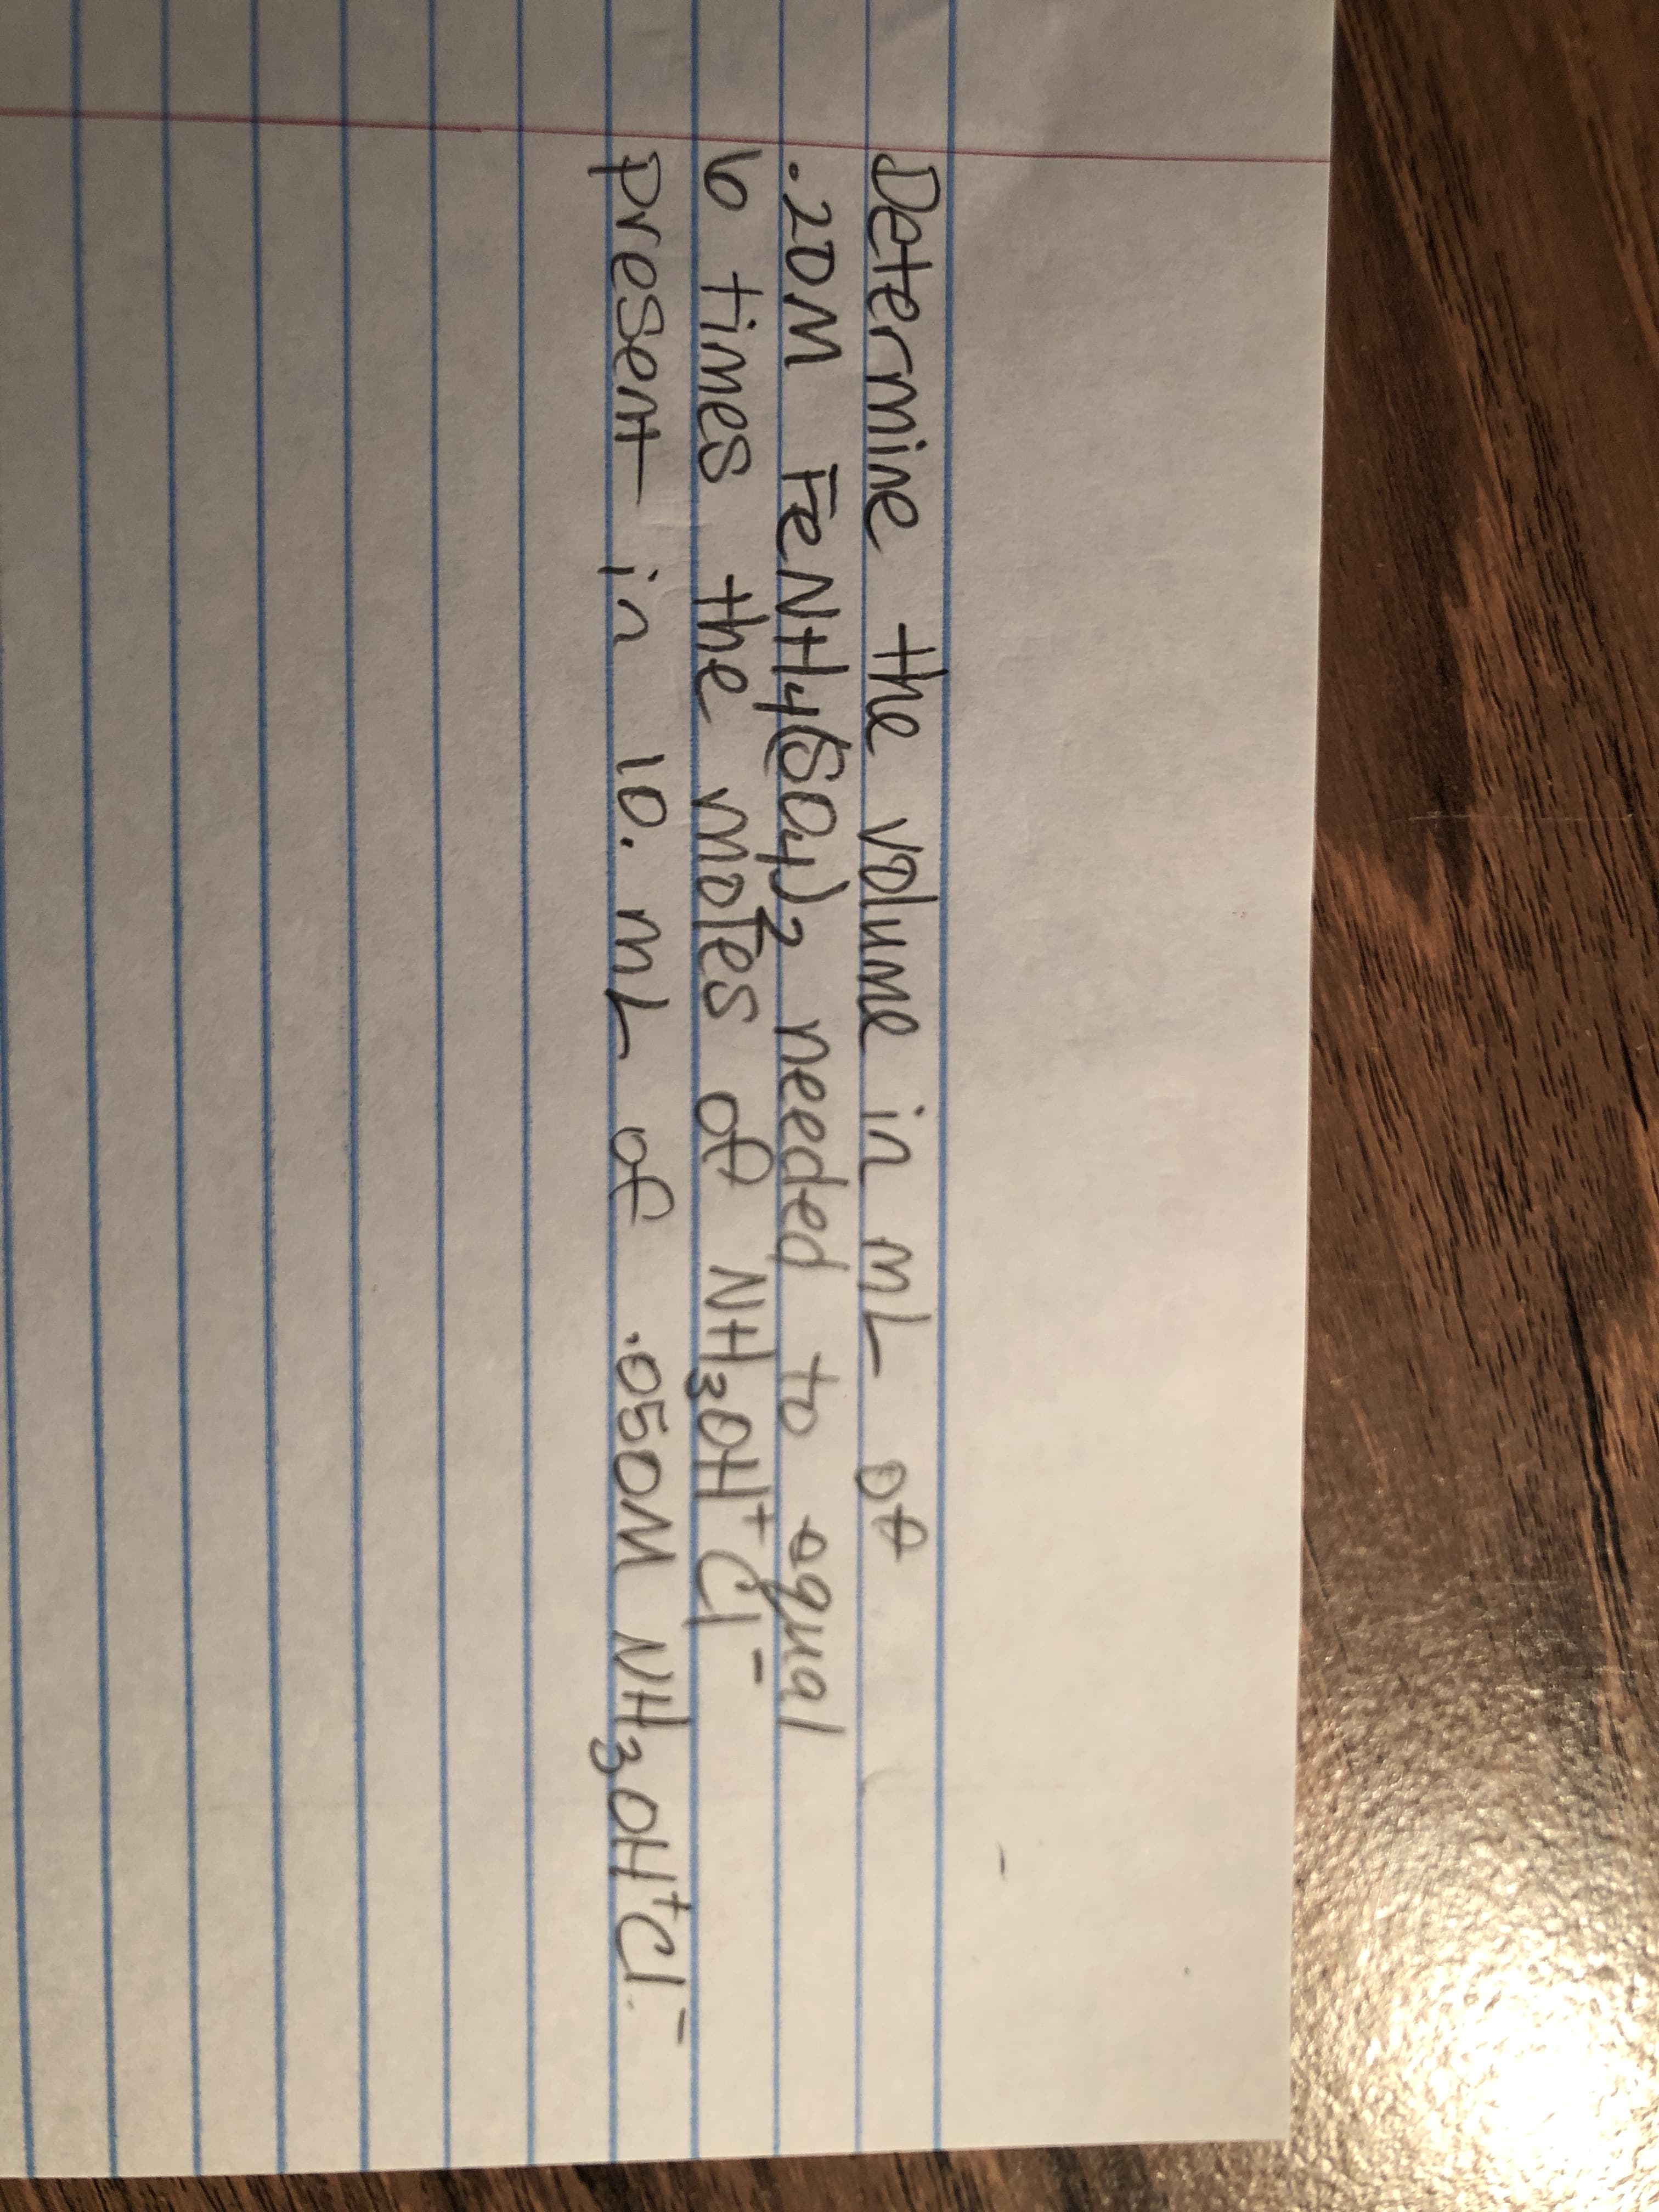 Determine the volume in mL of
.20M FeNH4(SO4)2 needed to equal
6 times the moles of NH3OH+Cl-
present in 10. mL of .050M NH3OH+Cl-.